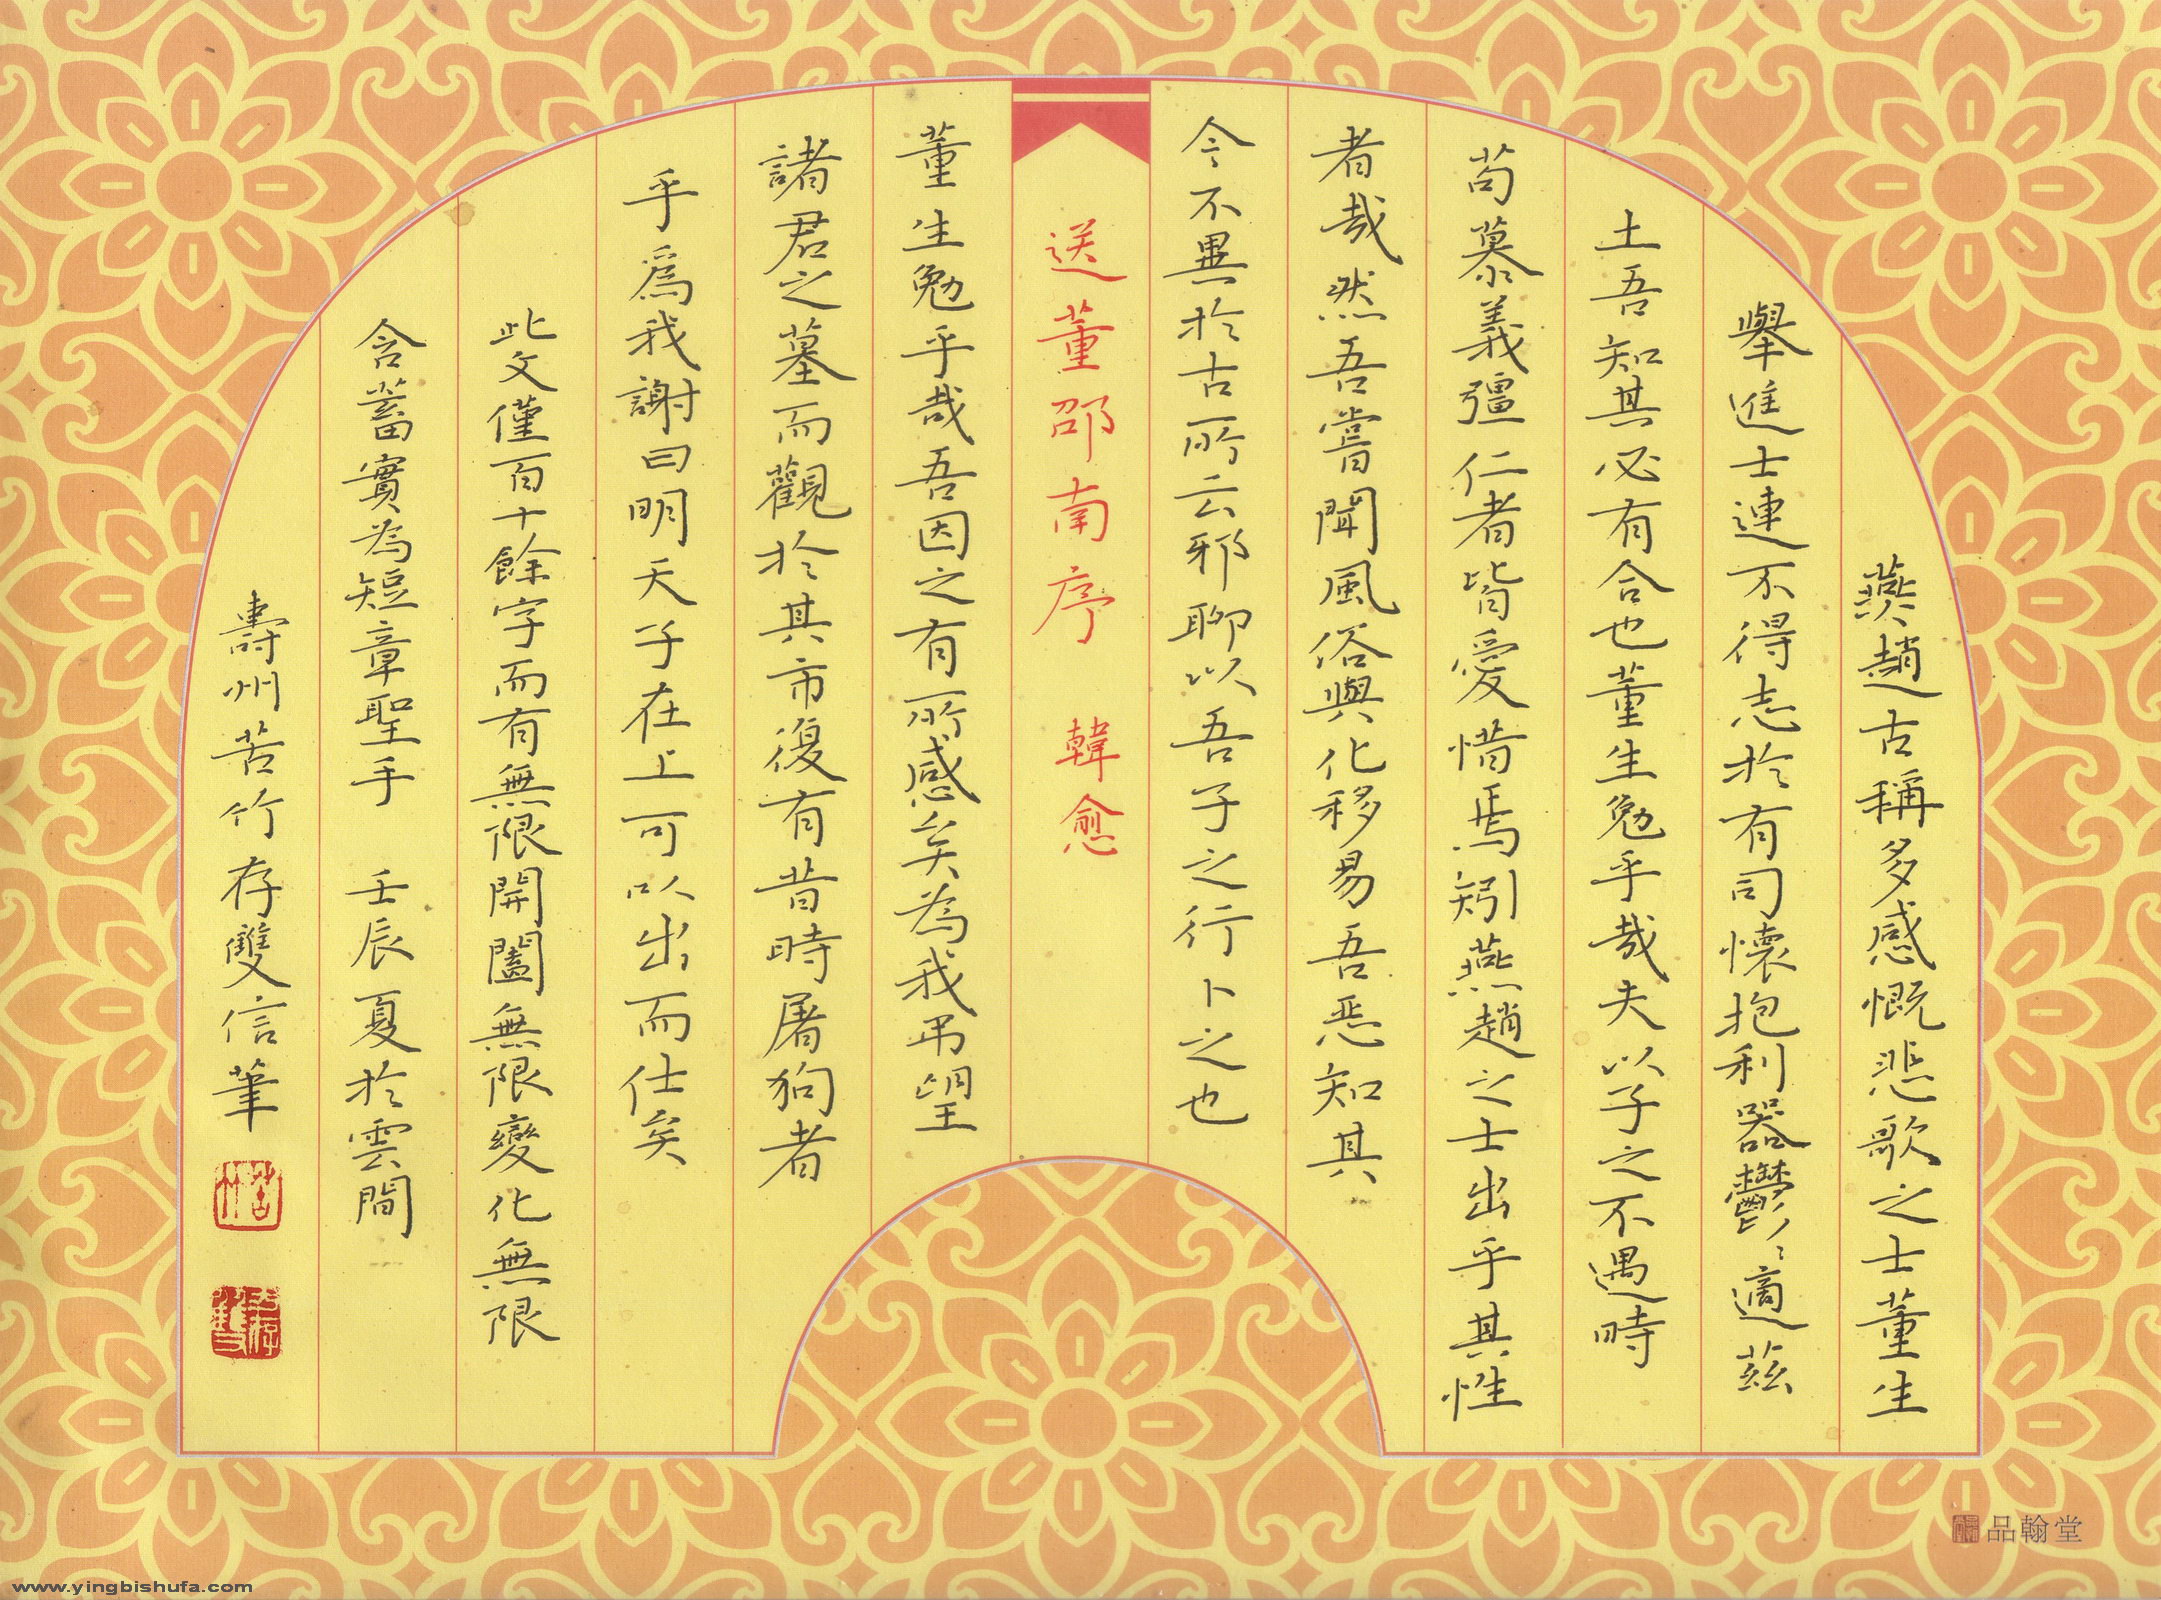 燕趙古稱多感慨悲歌之士董生
舉進士連不得志於有司懷抱利器鬱〻適茲
土吾知其必有合也董生勉乎哉夫以子之不遇時
苟慕義彊仁者皆愛惜焉矧燕趙之士出乎其性
者哉然吾嘗聞風俗與化移易吾惡知其
今不異於古所云邪聊以吾子之行卜之也
送董邵南序 韓愈
董生勉乎哉吾因之有所感矣為我弔望
諸君之墓而觀於其市復有昔時屠狗者
乎爲我謝曰明天子在上可以出而仕矣
此文僅百十餘字而有無限開闔無限變化無限
含蓄實為短章聖手 壬辰夏於雲間
壽州苦竹存雙信筆
苦竹
品翰堂
www.yingbishufa.com